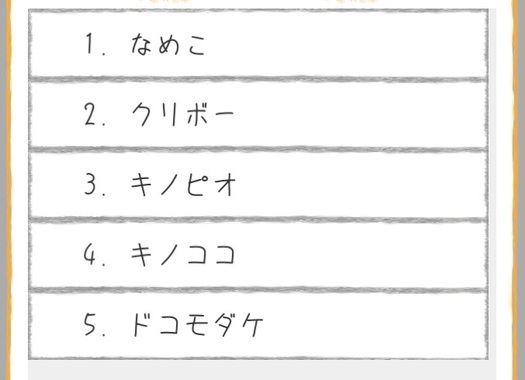 1. なめこ
2. クリボー
3. キノピオ
4. キノココ
5. ドコモダケ